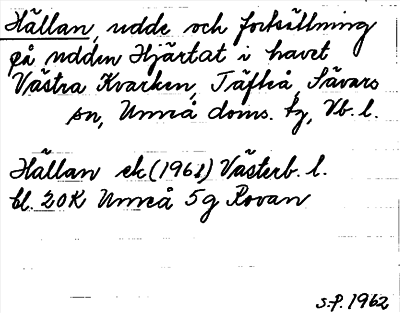 Hällan, udde och fortsättning
på udden Hjärtat i havet
Västra Kvarken, Täfteå, Sävars
sn, Umeå doms. tg, Vb. l.
Hällan ek (1961) Västerb. l.
bl. 20K Umeå 5g Rovan
S.P. 1962